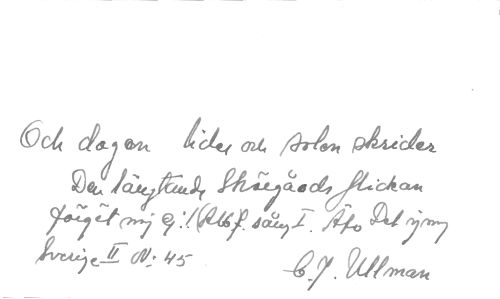 Och dagen lider och solen skrider
Den längtande Skärgårds flickan
förgät mig ej! f. sång I. Det
Sverige II N: 45
C. J. Ullman